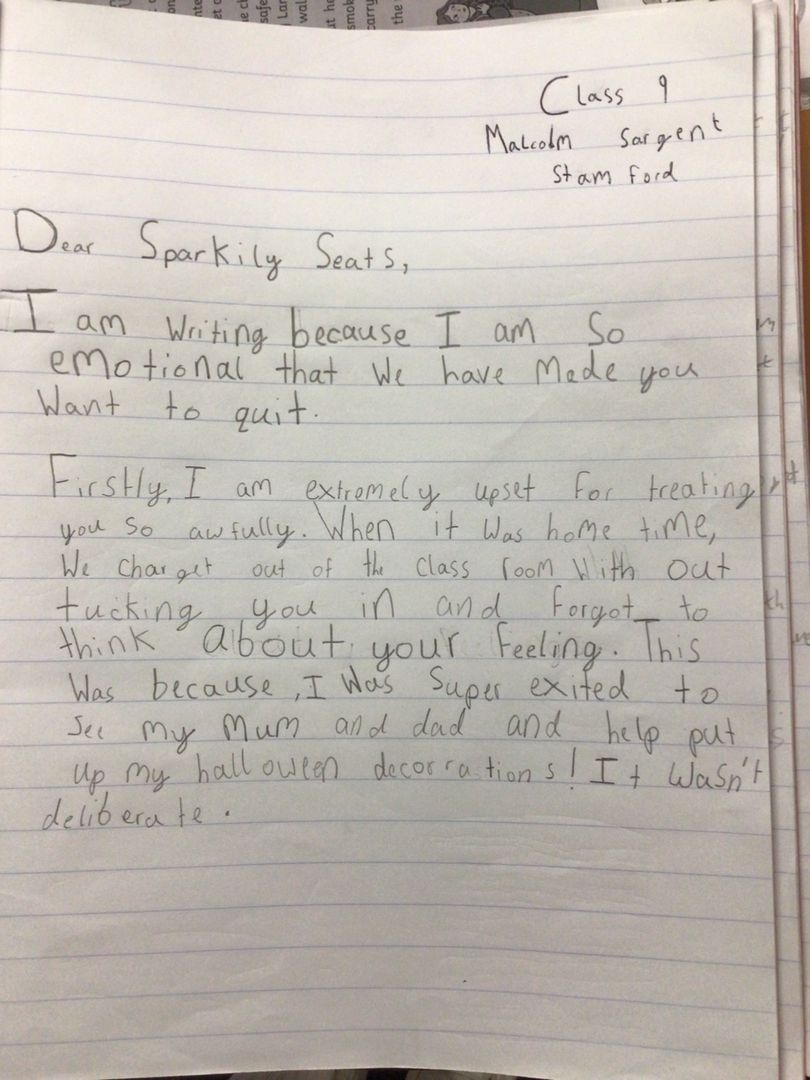 Class 9
Malcolm Sargent
Stamford
Dear Sparkily Seats,
I am writing because I am so
emotional that we have made you
want to quit.
Firstly, I am extremely upset for treating
you so awfully. When it was home time,
We charget out of the class room with out
tucking you in and forgot to
think about your feeling. This
was because, I was super exited to
see my mum and dad and help put
up my halloween decorrations! It wasn't
deliberate.